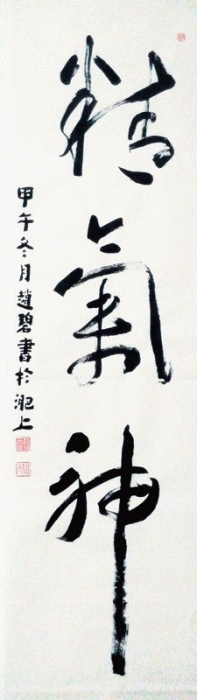 精氣神
甲午冬月趙碧書於淝上